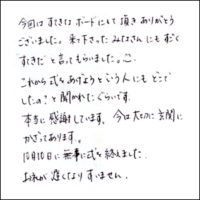 今回は すてきな ボードにして頂き ありがとう
ございました。来て下さった みなさんにも すごく
すてきだ と言ってもらいました。
これから式をあげようという人にも どこで
したの? と聞かれたぐらいです。
本当に感謝しています。今は 大切に玄関に
かざってあります。
10月10日に 無事に式を終えました。
お礼が遅くなり すいません。